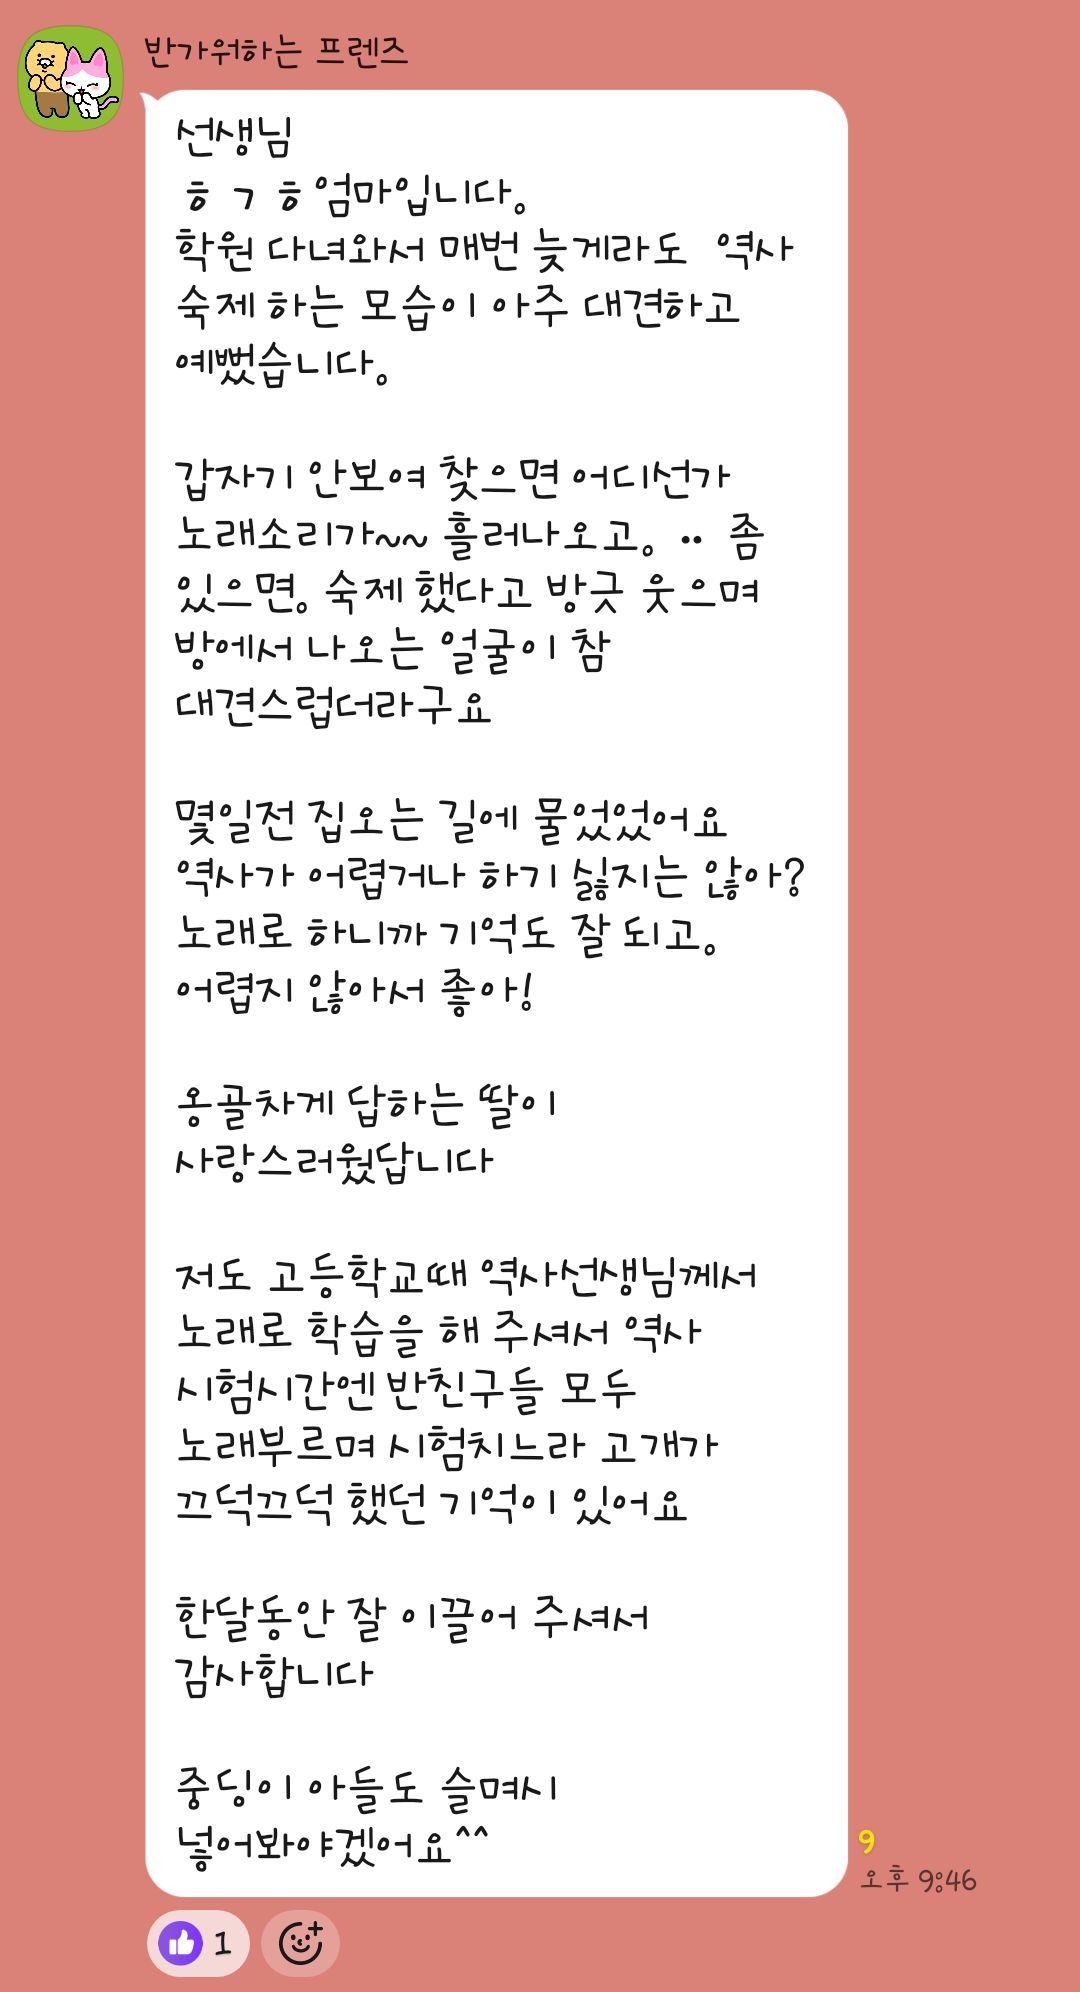 반가워하는 프렌즈
선생님
ㅎ ㄱ ㅎ 엄마입니다.
학원 다녀와서 매번 늦게라도 역사
숙제 하는 모습이 아주 대견하고
예뻤습니다.
갑자기 안보여 찾으면 어디선가
노래소리가~~ 흘러나오고. .. 좀
있으면. 숙제 했다고 방긋 웃으며
방에서 나오는 얼굴이 참
대견스럽더라구요
몇일전 집오는 길에 물었었어요
역사가 어렵거나 하기 싫지는 않아?
노래로 하니까 기억도 잘 되고.
어렵지 않아서 좋아!
옹골차게 답하는 딸이
사랑스러웠답니다
저도 고등학교때 역사선생님께서
노래로 학습을 해 주셔서 역사
시험시간엔 반친구들 모두
노래부르며 시험치느라 고개가
끄덕끄덕 했던 기억이 있어요
한달동안 잘 이끌어 주셔서
감사합니다
중딩이 아들도 슬며시
넣어봐야겠어요^^
9
오후 9:46
1